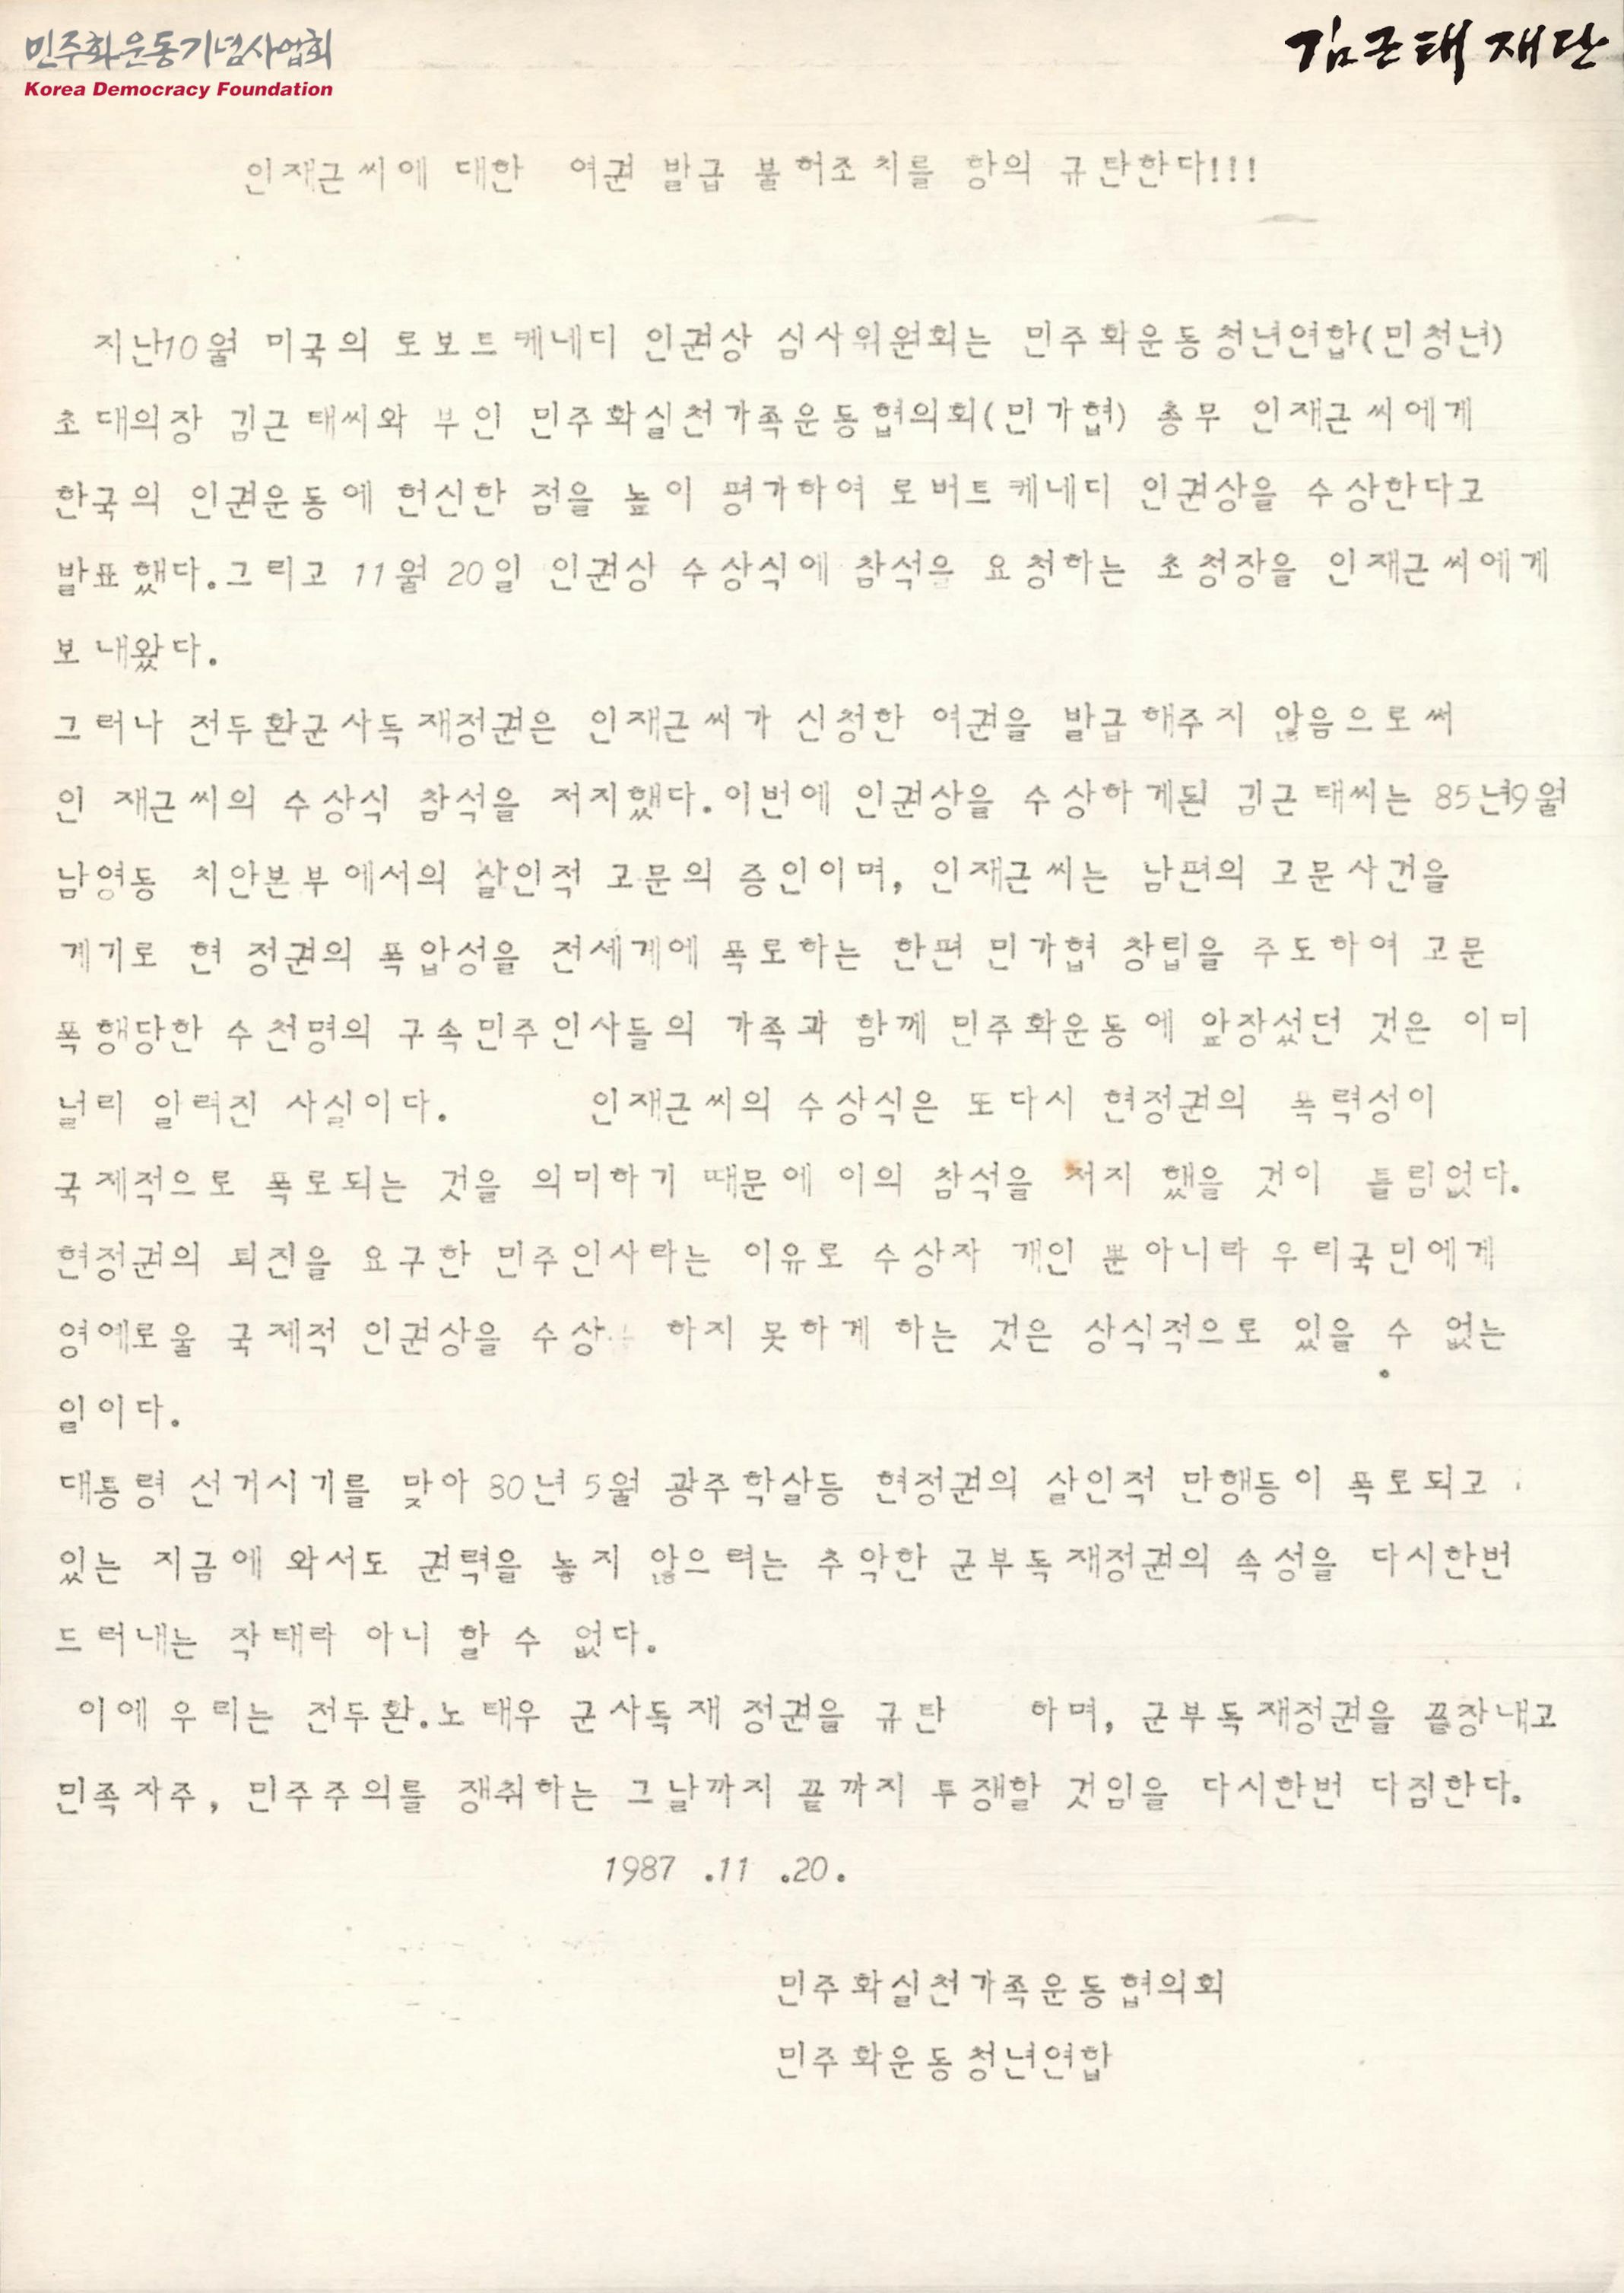 민주화운동기념사업회
Korea Democracy Foundation
김근태재단
인재근씨에 대한 여권 발급 불허조치를 항의 규탄한다!!!
지난10월 미국의 로보트케네디 인권상 심사위원회는 민주화운동청년연합(민청년)
초대의장 김근태씨와 부인 민주화실천가족운동협의회(민가협) 총무 인재근씨에게
한국의 인권운동에 헌신한 점을 높이 평가하여 로버트케네디 인권상을 수상한다고
발표했다.그리고 11월 20일 인권상 수상식에 참석을 요청하는 초청장을 인재근씨에게
보내왔다.
그러나 전두환군사독재정권은 인재근씨가 신청한 여권을 발급해주지 않음으로써
인 재근씨의 수상식 참석을 저지했다.이번에 인권상을 수상하게된 김근태씨는 85년9월
남영동 치안본부에서의 살인적 고문의 증인이며, 인재근씨는 남편의 고문사건을
계기로 현 정권의 폭압성을 전세계에 폭로하는 한편 민가협 창립을 주도하여 고문
폭행당한 수천명의 구속민주인사들의 가족과 함께 민주화운동에 앞장섰던 것은 이미
널리 알려진 사실이다. 인재근씨의 수상식은 또다시 현정권의 폭력성이
국제적으로 폭로되는 것을 의미하기 때문에 이의 참석을 저지 했을 것이 틀림없다.
현정권의 퇴진을 요구한 민주인사라는 이유로 수상자 개인 뿐아니라 우리국민에게
영예로울 국제적 인권상을 수상 하지 못하게 하는 것은 상식적으로 있을 수 없는
일이다.
대통령 선거시기를 맞아 80년 5월 광주학살등 현정권의 살인적 만행등이 폭로되고
있는 지금에 와서도 권력을 놓지 않으려는 추악한 군부독재정권의 속성을 다시한번
드러내는 작태라 아니 할 수 없다.
이에 우리는 전두환.노태우 군사독재 정권을 규탄 하며, 군부독재정권을 끝장내고
민족자주, 민주주의를 쟁취하는 그날까지 끝까지 투쟁할 것임을 다시한번 다짐한다.
1987 .11 .20.
민주화실천가족운동협의회
민주화운동청년연합